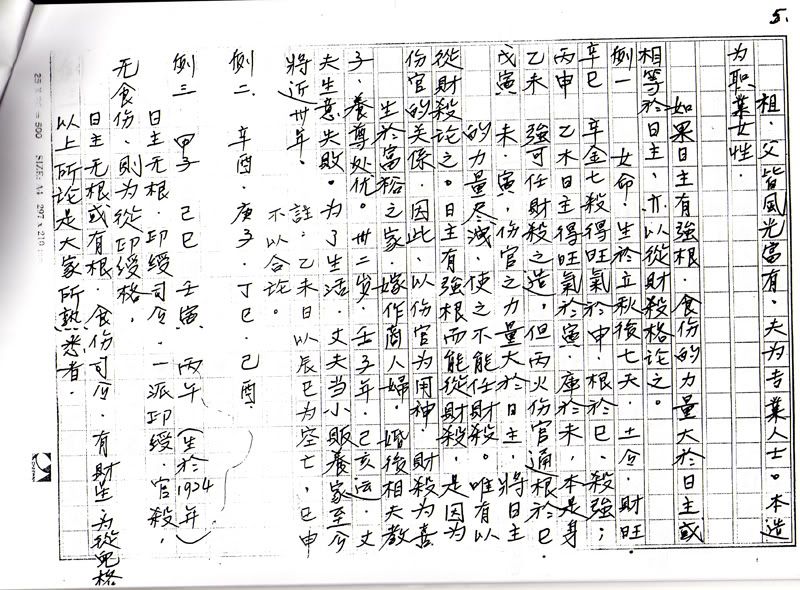 5.
祖．父皆風光富有．夫为专業人士。本造
为职業女性．
如果日主有強根．食份的力量大於日主或
相等於日主．亦以從財殺格论之。
例一 女命．生於立秋後七天．土令．財旺．
辛巳 辛金七殺得旺氣於申．根於巳．殺強；
丙申 乙木日主得旺氣於寅．庫於未．本是身
乙未 強可任財殺之造．但丙火份官通根於巳．
戊寅 未．寅．份官之力量大於日主．將日主
的力量尽洩．使之不能任財殺。唯有以
從財殺论之。日主有強根而能從財殺．是因为
份官的关係．因此．以份官为用神．財殺为喜
生於富裕之家．嫁作商人婦．婚後相夫教
子．養尊处优。卅二岁．壬子年．己亥运．丈
夫生意失敗。为了生活．丈夫当小販養家至今
將近卅年。 註：乙未日以辰巳为空亡，巳申
不以合论。
例二． 辛酉．庚子．丁巳．己酉
例三 甲子 己巳 壬寅 丙午 (生於1924年)
日主无根．印綬司令．一派印綬．官殺，
无食份．則为從印綬格．
日主无根或有根．食份司令．有財星为從兒格
以上所论是大家所熟悉者．
25 500 SIZE: A4 297 x 210